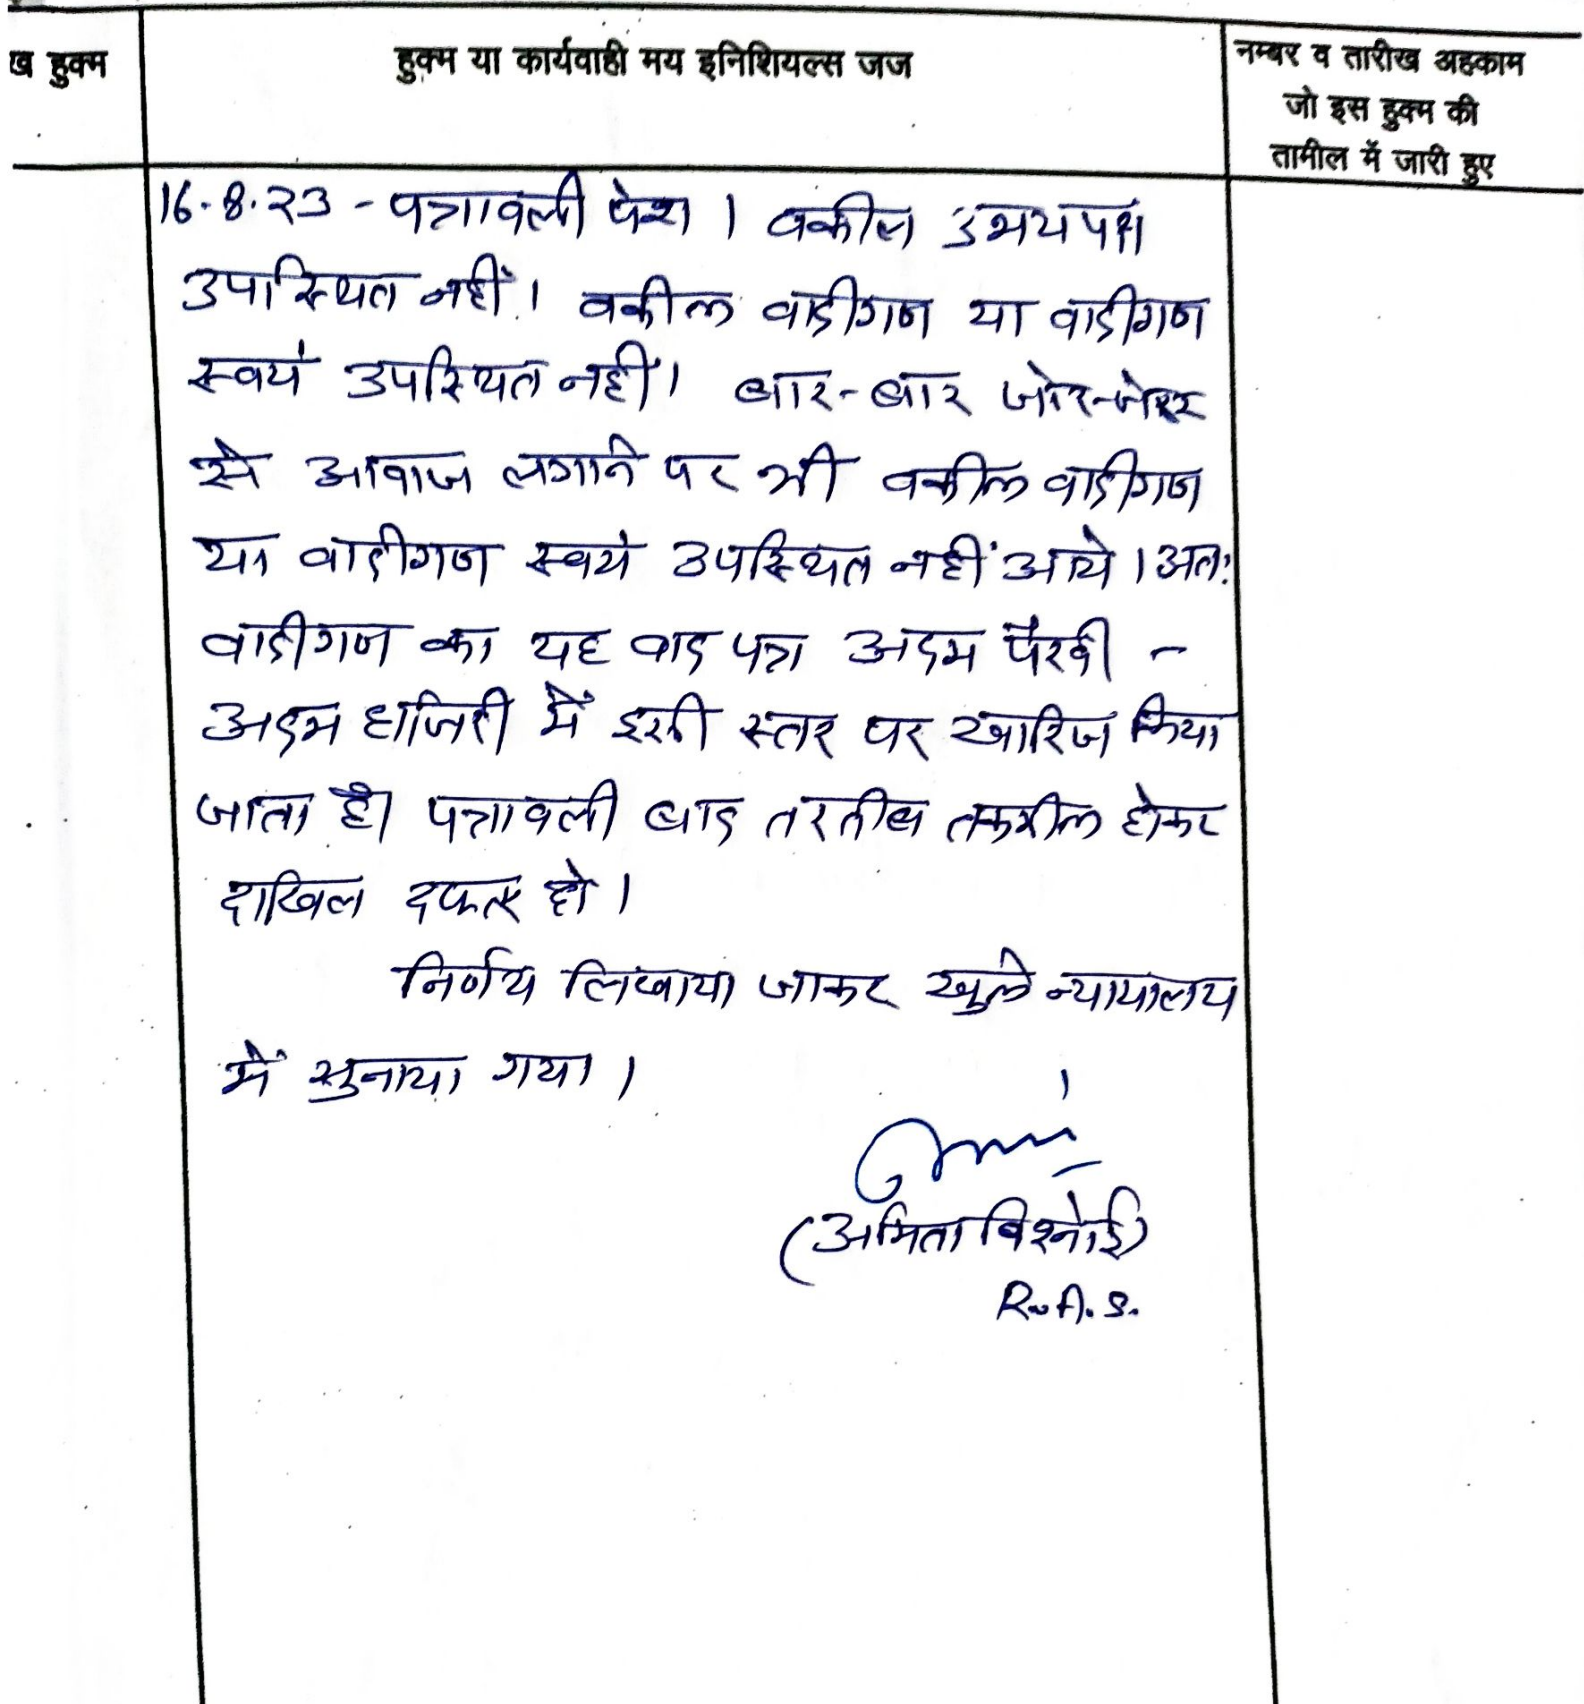 ख हुक्म
हुक्म या कार्यवाही मय इनिशियल्स जज
नम्बर व तारीख अहकाम
जो इस हुक्म की
तामील में जारी हुए
16.8.23 - पत्रावली पेश । वकील उभयपक्ष
उपस्थित नहीं । वकील वादीगण या वादीगण
स्वयं उपस्थित नहीं । बार-बार जोर-जोर
से आवाज लगाने पर भी वकील वादीगण
या वादीगण स्वयं उपस्थित नहीं आये । अतः
वादीगण का यह वाद पत्र अदम पैरवी -
अदम हाजिरी में इसी स्तर पर खारिज किया
जाता है। पत्रावली बाद तरतीब तकमील होकर
दाखिल दफ्तर हो ।
निर्णय लिखाया जाकर खुले न्यायालय
में सुनाया गया ।
(अमिता बिश्नोई)
R.A.S.